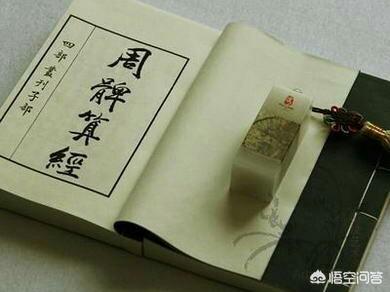 周髀算經
四部叢刊子部
悟空问答